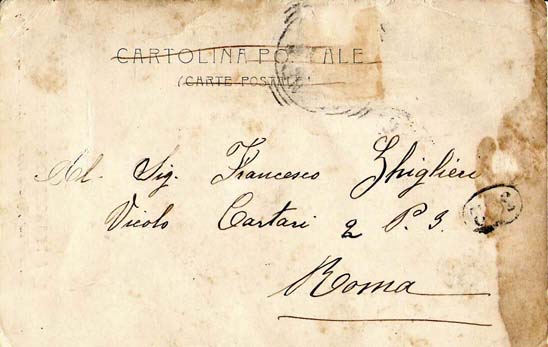 CARTOLINA POSTALE
(CARTE POSTALE)
Al. Sig. Francesco Ghiglieri
Vicolo Cartari 2 P. 3.
Roma